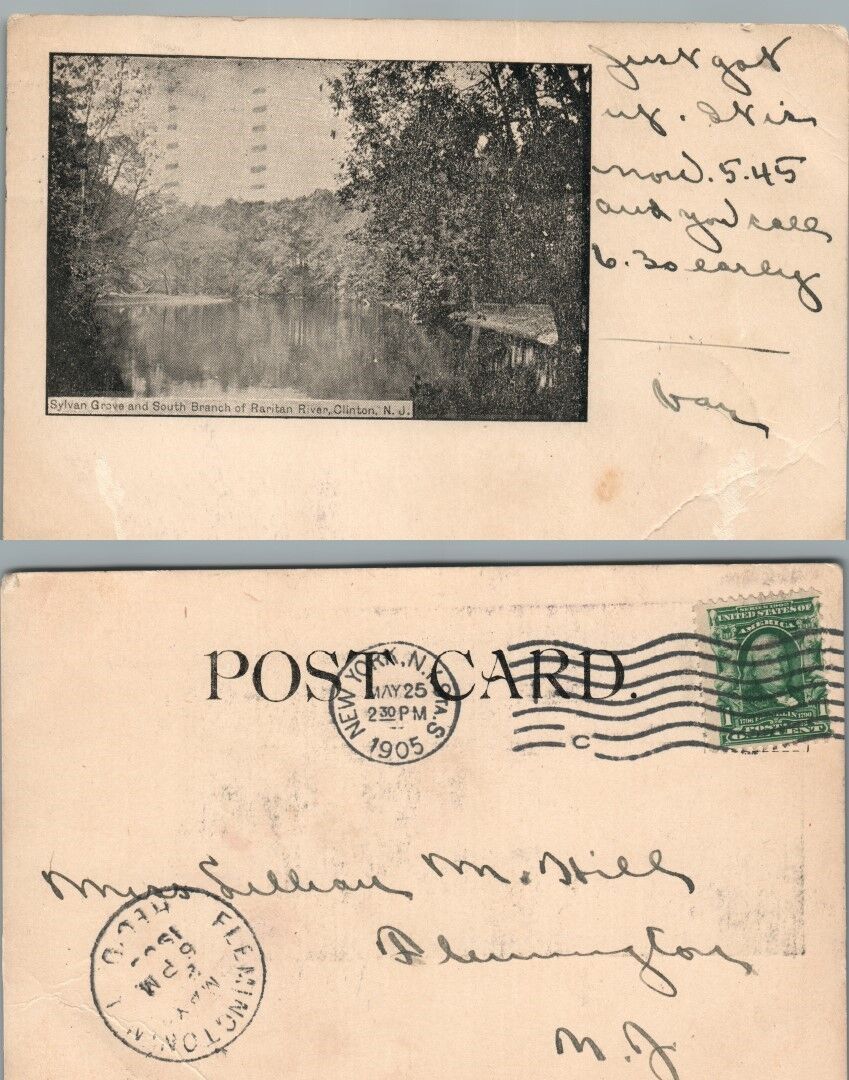 Just got
up. It is
now. 5.45
and you call
6.30 early
Sylvan Grove and South Branch of Raritan River, Clinton, N. J.
POST CARD.
NEW YORK, N.Y. STA. S
MAY 25
2 30 PM
1905
C
SERIES 1902
UNITED STATES OF
AMERICA
1 1
POSTAGE
ONE CENT
Miss Lillian M. Hill
Flemington
N. J.
FLEMINGTON N J
REC'D.
MAY
PM